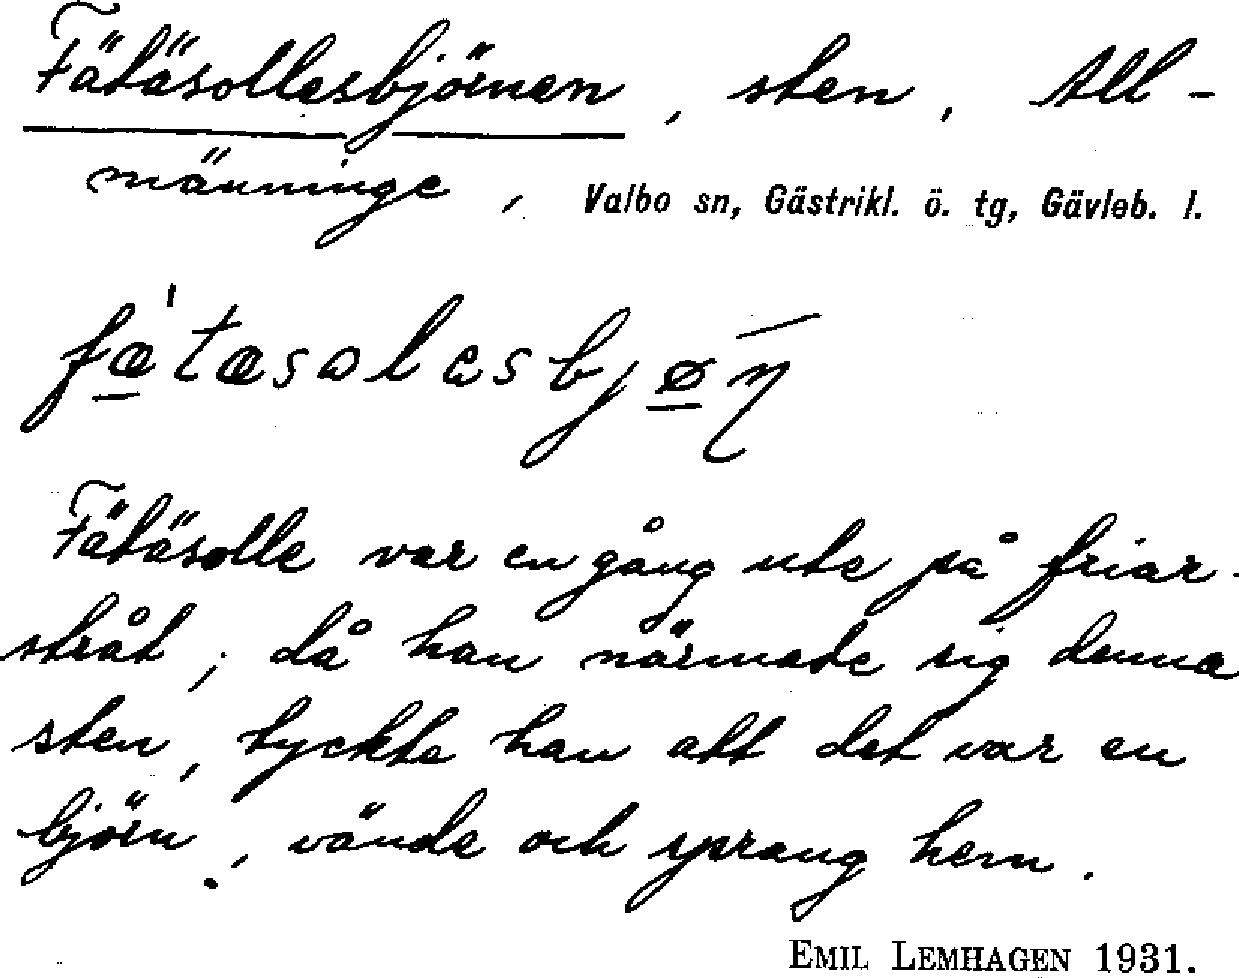 Fätäsollesbjörnen, sten, All-
männinge, Valbo sn, Gästrikl. ö. tg, Gävleb. l.
fæ̱'tæsolesbjø̱n̄
Fätäsolle var en gång ute på friar-
stråt; då han närmade sig denna
sten, tyckte han att det var en
björn, vände och sprang hem.
EMIL LEMHAGEN 1931.